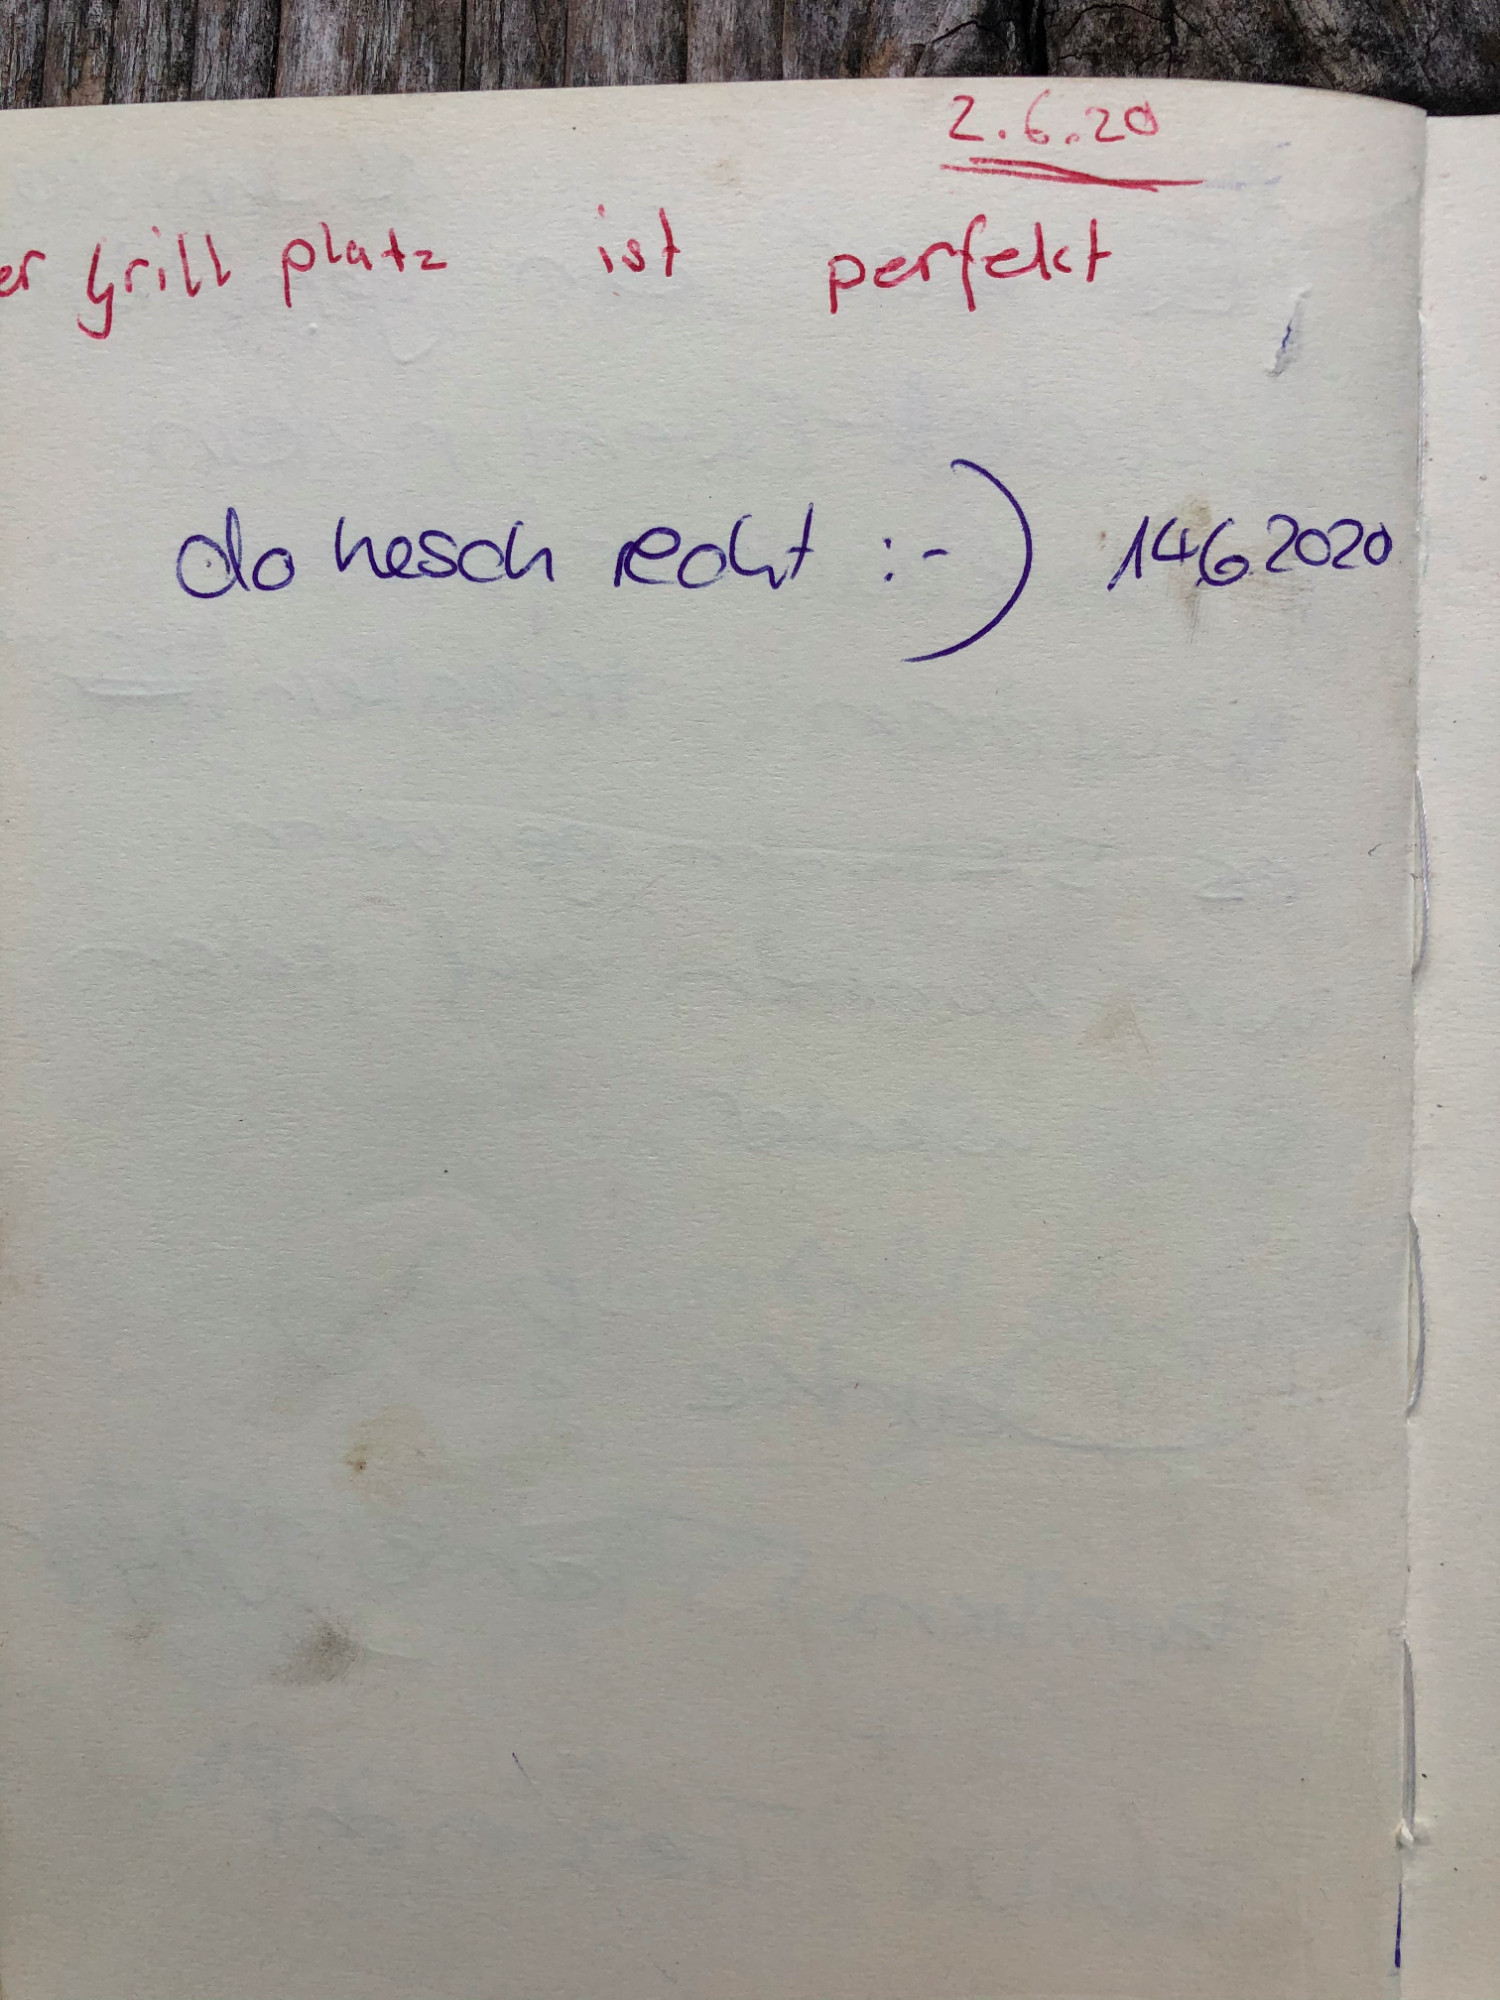 2.6.20
er Grill platz ist perfekt
do hesch recht :-) 1462020